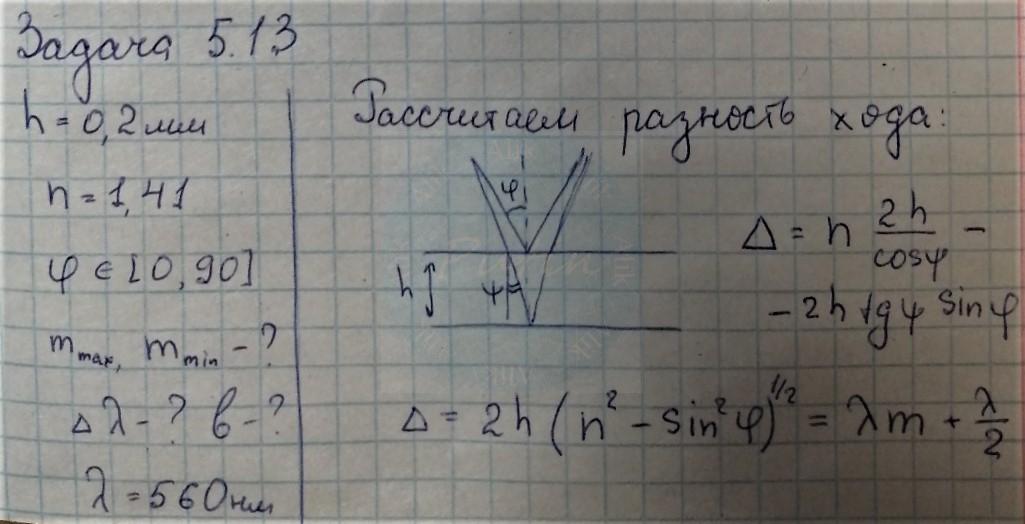 Задача 5.13
h = 0,2 мм
n = 1,41
φ ∈ [0, 90]
m_max, m_min - ?
Δλ - ? b - ?
λ = 560 нм
Рассчитаем разность хода:
φ
h
ψ
Δ = n 2h/cosψ -
- 2h tgψ sinφ
Δ = 2h (n² - sin²φ)^1/2 = λm + λ/2